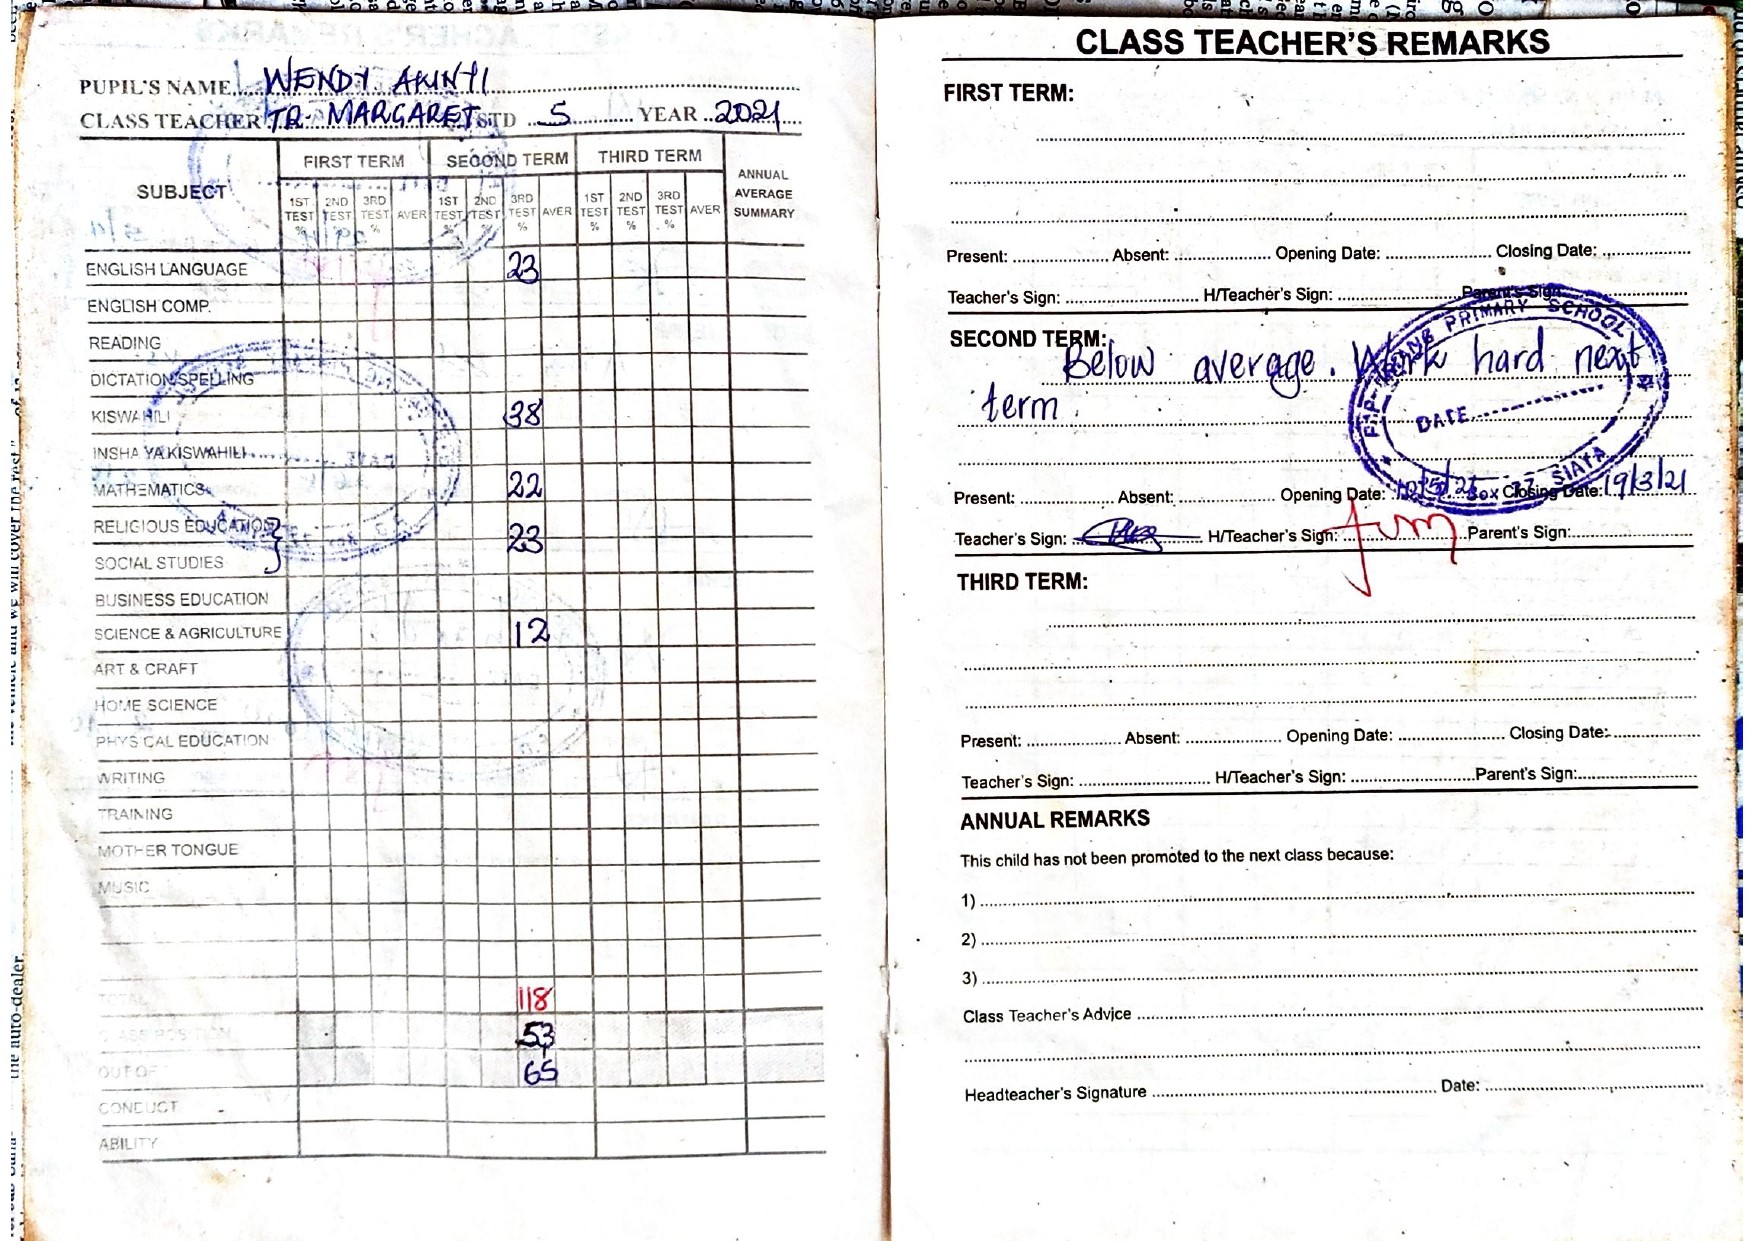 PUPIL'S NAME WENDY AKINYI
CLASS TEACHER TR. MARGARET STD 5 YEAR 2021
SUBJECT
FIRST TERM SECOND TERM THIRD TERM ANNUAL AVERAGE SUMMARY
1ST TEST % 2ND TEST % 3RD TEST % AVER 1ST TEST % 2ND TEST % 3RD TEST % AVER 1ST TEST % 2ND TEST % 3RD TEST % AVER
ENGLISH LANGUAGE 23
ENGLISH COMP.
READING
DICTATION/SPELLING
KISWAHILI 38
INSHA YA KISWAHILI
MATHEMATICS 22
RELIGIOUS EDUCATION } 23
SOCIAL STUDIES
BUSINESS EDUCATION
SCIENCE & AGRICULTURE 12
ART & CRAFT
HOME SCIENCE
PHYSICAL EDUCATION
WRITING
TRAINING
MOTHER TONGUE
MUSIC
TOTAL 118
CLASS POSITION 53
OUT OF 65
CONDUCT
ABILITY
CLASS TEACHER'S REMARKS
FIRST TERM:
Present: Absent: Opening Date: Closing Date:
Teacher's Sign: H/Teacher's Sign: Parent's Sign
SECOND TERM:
Below average. Work hard next
term
PRIMARY SCHOOL
DATE
BOX 77 SIAYA
Present: Absent: Opening Date: Closing Date: 19/3/21
Teacher's Sign: H/Teacher's Sign: Parent's Sign:
THIRD TERM:
Present: Absent: Opening Date: Closing Date:
Teacher's Sign: H/Teacher's Sign: Parent's Sign:
ANNUAL REMARKS
This child has not been promoted to the next class because:
1)
2)
3)
Class Teacher's Advice
Headteacher's Signature Date:
the auto-dealer.